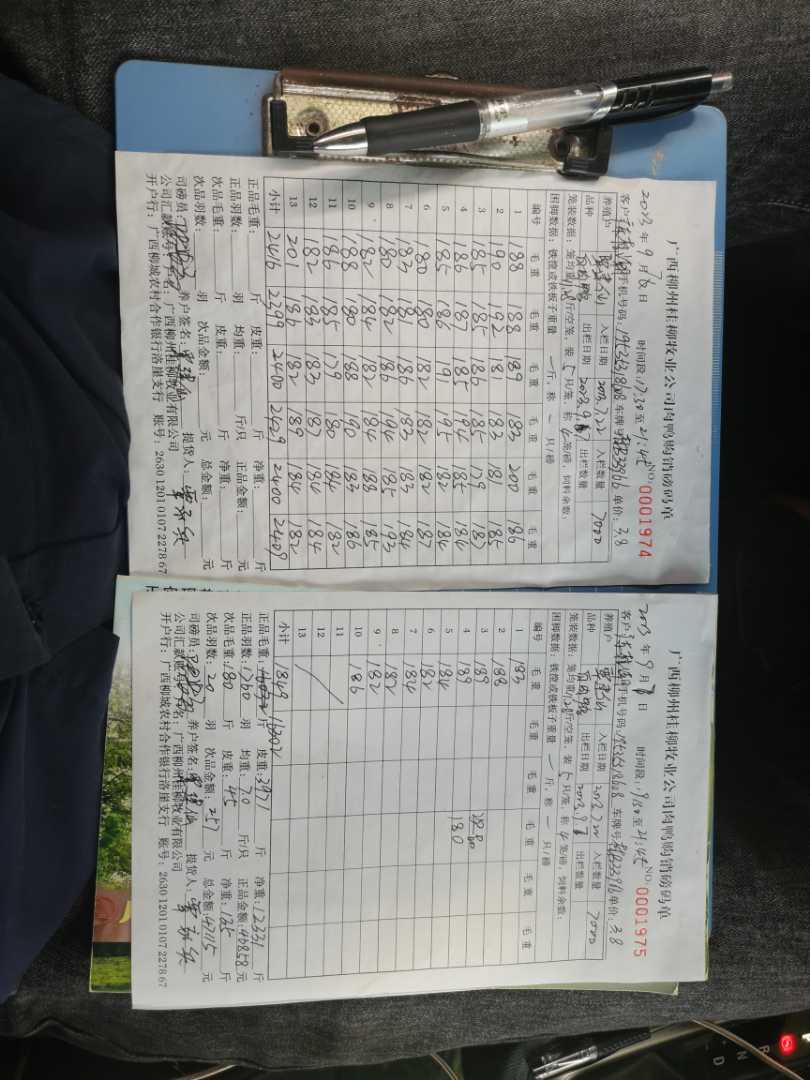 广西柳州桂柳牧业公司肉鸭购销磅码单
2023年9月 日 时间段:17:30至21:45 NO: 0001974
客户 手机号码: 车牌号 单价:3.8
养殖户 入栏日期 2023.7.22 入栏数量 7000
品种 出栏日期 2023.9. 出栏数量
笼装数据:笼均重 斤/空笼,装5只/笼,称4笼/磅,饲料余数:
困脚数据:铁筐或铁板子重量 一 斤,称 一 只/磅
编号 毛重 毛重 毛重 毛重 毛重 毛重
1 188 188 189 183 200 186
2 190 192 181 183 181 185
3 185 185 186 185 179 187
4 186 187 185 194 185 184
5 185 186 191 195 182 184
6 180 180 182 182 182 187
7 183 181 186 183 183 184
8 180 182 186 194 185 193
9 182 184 182 184 188 185
10 188 180 188 190 183 186
11 186 185 179 180 184 182
12 182 183 183 187 184 184
13 201 186 182 189 184 182
小计 2416 2399 2400 2429 2400 2409
正品毛重: 斤 皮重: 斤 净重: 斤
正品羽数: 羽 均重: 斤/只 正品金额: 元
次品毛重: 斤 皮重: 斤 净重: 斤
次品羽数: 羽 次品金额: 元 总金额: 元
司磅员: 养户签名: 提货人:
公司汇款账号:户名:广西柳州桂柳牧业有限公司
开户行:广西柳城农村合作银行洛崖支行 账号:2630 1201 0107 2278 67
广西柳州桂柳牧业公司肉鸭购销磅码单
2023年9月 日 时间段: 至21:45 NO: 0001975
客户 手机号码: 车牌号 单价:3.8
养殖户 入栏日期 2023.7.22 入栏数量 7000
品种 出栏日期 2023.9. 出栏数量
笼装数据:笼均重 斤/空笼,装5只/笼,称4笼/磅,饲料余数:
困脚数据:铁筐或铁板子重量 一 斤,称 一 只/磅
编号 毛重 毛重 毛重 毛重 毛重 毛重
1 183
2 188
3 189
4 189 180
5 184
6 182
7 184
8 182
9 182
10 186
11
12
13
小计 1849
正品毛重: 16302斤 皮重:3971斤 净重:12331斤
正品羽数:1760羽 均重:7.0斤/只 正品金额:46858元
次品毛重:180斤 皮重:45斤 净重:135斤
次品羽数:20羽 次品金额:257元 总金额:47115元
司磅员: 养户签名: 提货人:
公司汇款账号:户名:广西柳州桂柳牧业有限公司
开户行:广西柳城农村合作银行洛崖支行 账号:2630 1201 0107 2278 67